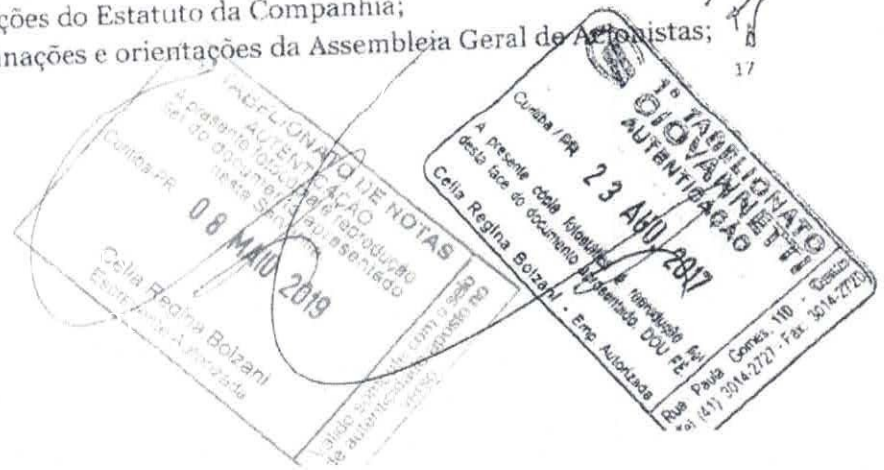 ções do Estatuto da Companhia;
nações e orientações da Assembleia Geral de Acionistas;
17
TABELIONATO DE NOTAS
AUTENTICAÇÃO
A presente fotocópia é reprodução
do documento apresentado
nesta
Curitiba-PR
08 MAIO 2019
Celia Regina Bolzani
Escrevente Autorizada
Válido somente com o selo
de autenticidade aposto no
verso
1º TABELIONATO
GIOVANNETTI
AUTENTICAÇÃO
Curitiba / PR
23 AGO 2017
A presente cópia fotostática é reprodução fiel
desta face do documento apresentado. DOU FÉ
Celia Regina Bolzani - Emp. Autorizada
Rua Paula Gomes, 110 -
Tel (41) 3014-2727 - Fax: 3014-2720